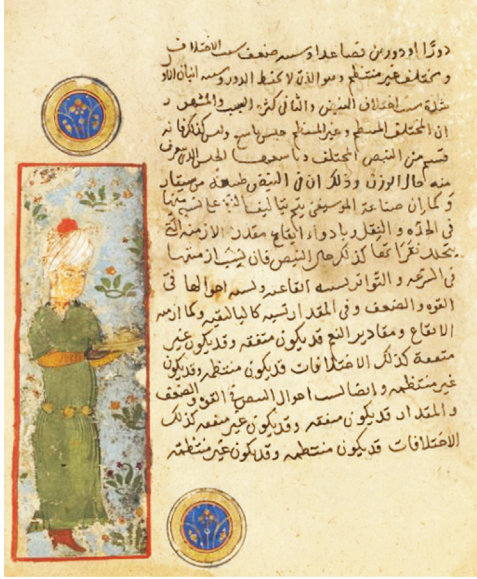 دورًا او دورين فصاعدا وسببه ضعف سبب الاختلاف
ومختلف غير منتظم وهو الذي لا يحفظ الدور وسببه
سبب اختلاف النبض والثاني كثرة السبب والمشهور
ان المختلف المنتظم وغير المنتظم جنس تاسع وليس كذلك فانه
قسم من النبض المختلف وتاسعها الجنس الذي يتعرف
منه حال الوزن وذلك ان في النبض طبيعة موسيقار
وكما ان صناعة الموسيقى يتم بتاليف النغم على نسبة بينها
في الحدة والثقل وبادوار ايقاع مقدار الازمنة التي
يتخلل نقراتها كذلك حال النبض فان نسبة ازمنتها
في السرعة والتواتر نسبة ايقاعية ونسبة احوالها في
القوة والضعف وفي المقدار نسبة كالتاليفية وكما ازمنة
الايقاع ومقادير النغم قد يكون متفقة وقد يكون غير
متفقة كذلك الاختلافات قد يكون منتظمة وقد يكون
غير منتظمة وايضا نسب احوال النبض في القوة والضعف
والمقدار قد يكون متفقة وقد يكون غير متفقة كذلك
الاختلافات قد يكون منتظمة وقد يكون غير منتظمة